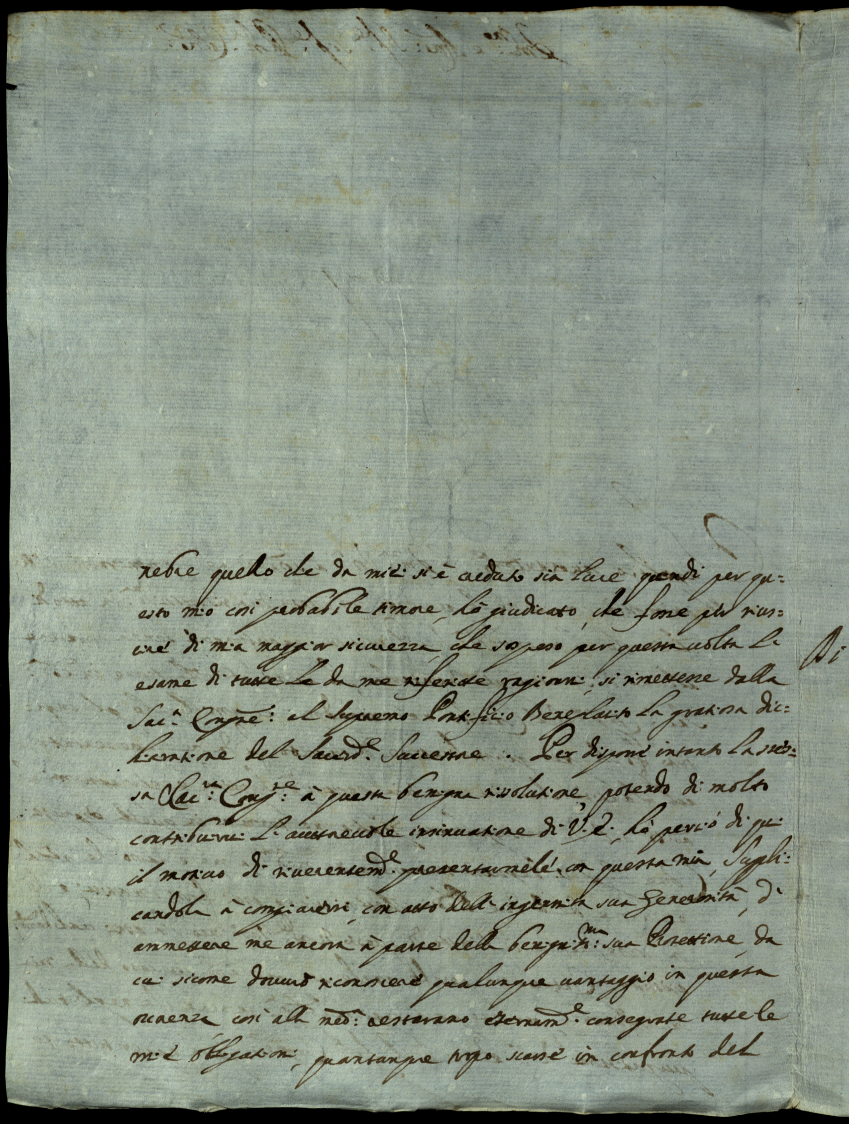 nebre quello che da miei si è creduto sin luce quindi per qu=
esto mio così probabile timore, hò giudicato, che forse per rius=
cire di mia maggior sicurezza, che sospeso per questa volta l'
esame di tutte le da me riferite ragioni, si rimettesse dalla
Sac.ª Congne: al Supremo Pontificio Beneplacito la gratiosa dic=
hiaratione del Sacerd.e Successore. Per disporre intanto la stes=
sa Sac.ra: Cong.ne: à questa benigna risolutione, potendo di molto
contribuire l'autorevole insinuatione di V. E., hò perciò di qui
il motivo di riverentem.e presentarmele con questa mia, suppli=
candola à compiacersi, con atto dell'ingenita sua generosità, di
ammettere me ancora à parte della benignis.ma: sua Protettione, da
cui sicome dovrò riconoscere qualunque vantaggio in questa
occorrenza così alla med.ª resteranno eternam.e consegrate tutte le
mie obligationi, quantunque tropo scarse in confronto del